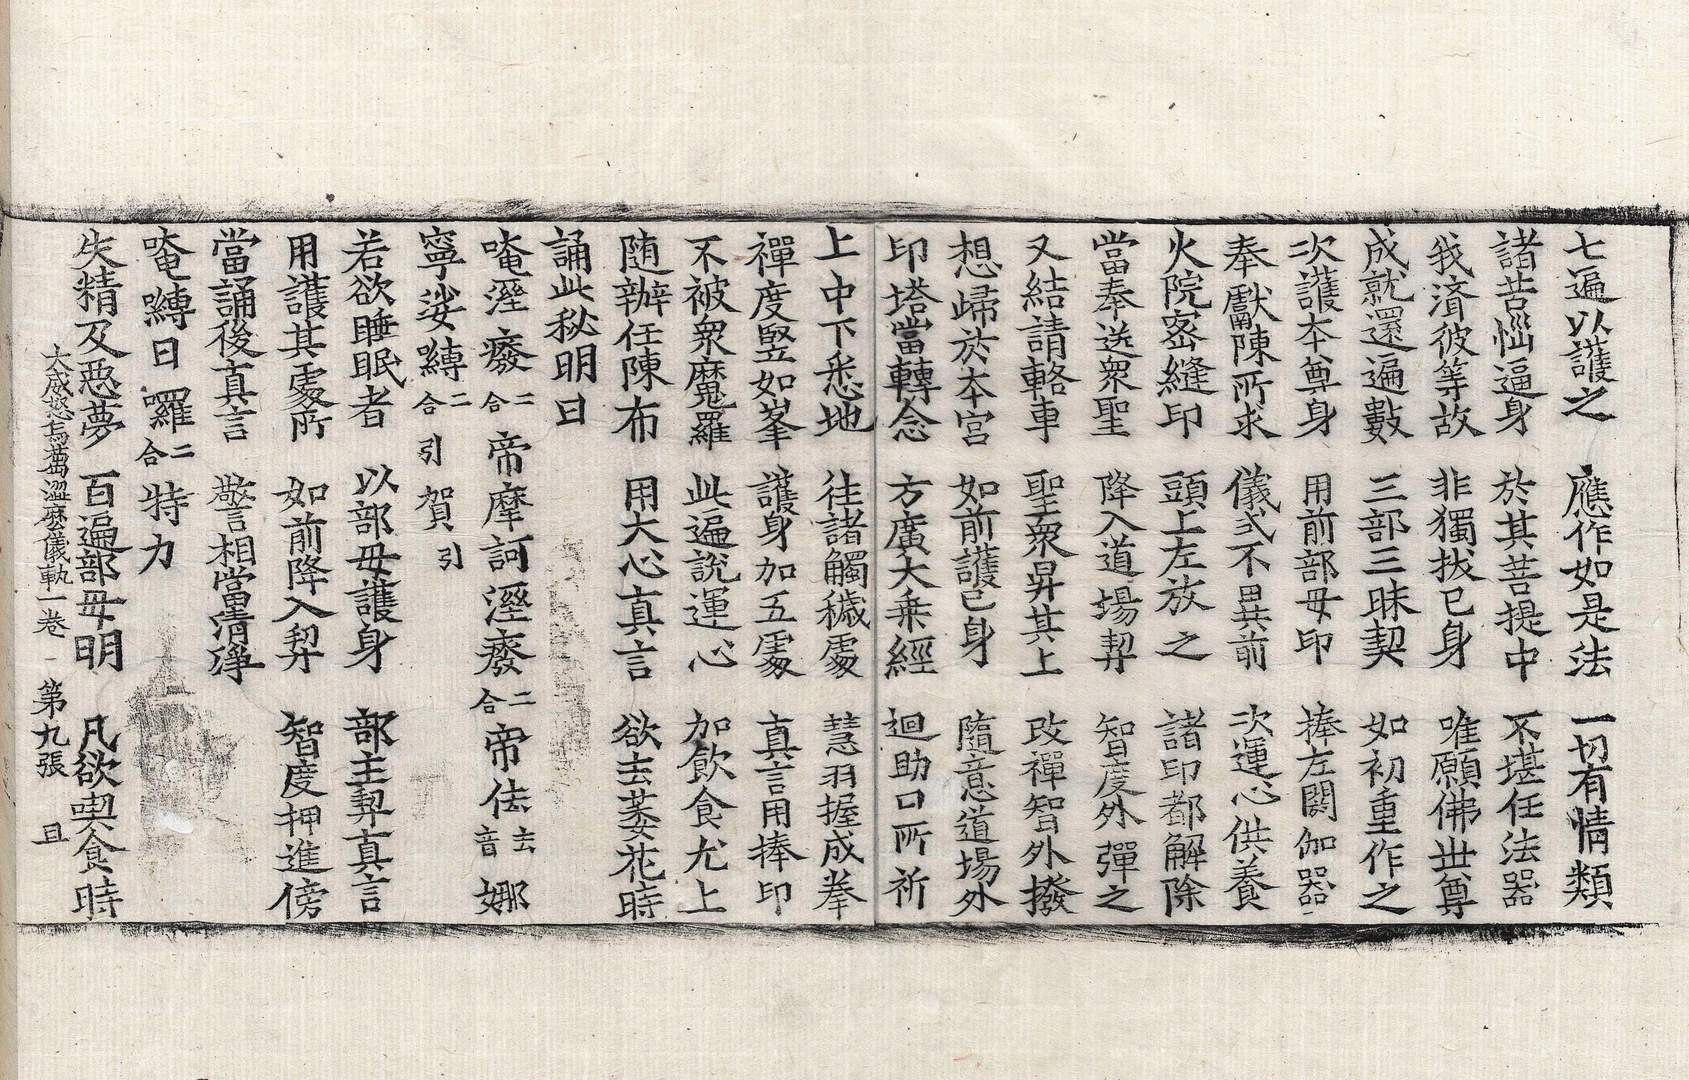 七遍以護之　應作如是法　一切有情類
諸苦惱逼身　於其菩提中　不堪任法器
我濟彼等故　非獨拔己身　唯願佛世尊
成就還遍數　三部三昧契　如初重作之
次護本尊身　用前部母印　捧左閼伽器
奉獻陳所求　儀式不異前　次運心供養
火院密縫印　頭上左放之　諸印都解除
當奉送衆聖　降入道場契　智度外彈之
又結請輅車　聖衆昇其上　改禪智外撥
想歸於本宮　如前護己身　隨意道場外
印塔當轉念　方廣大乗經　迴助口所祈
上中下悉地　往諸觸穢處　慧羽握成拳
禪度竪如峯　護身加五處　真言用捧印
不被衆魔羅　此遍說運心　加飲食尤上
随辦任陳布　用大心真言　欲去萎花時
誦此秘明曰
唵溼癈二合帝摩訶溼癈二合帝佉去音娜
寧娑嚩二合引賀引
若欲睡眠者　以部母護身　部主契真言
用護其處所　如前降入契　智度押進傍
當誦後真言　警相當清淨
唵嚩日囉二合特力
失精及惡夢　百遍部母明　凡欲喫食時
大威怒烏蒭澀麽儀軌一卷　第九張　且